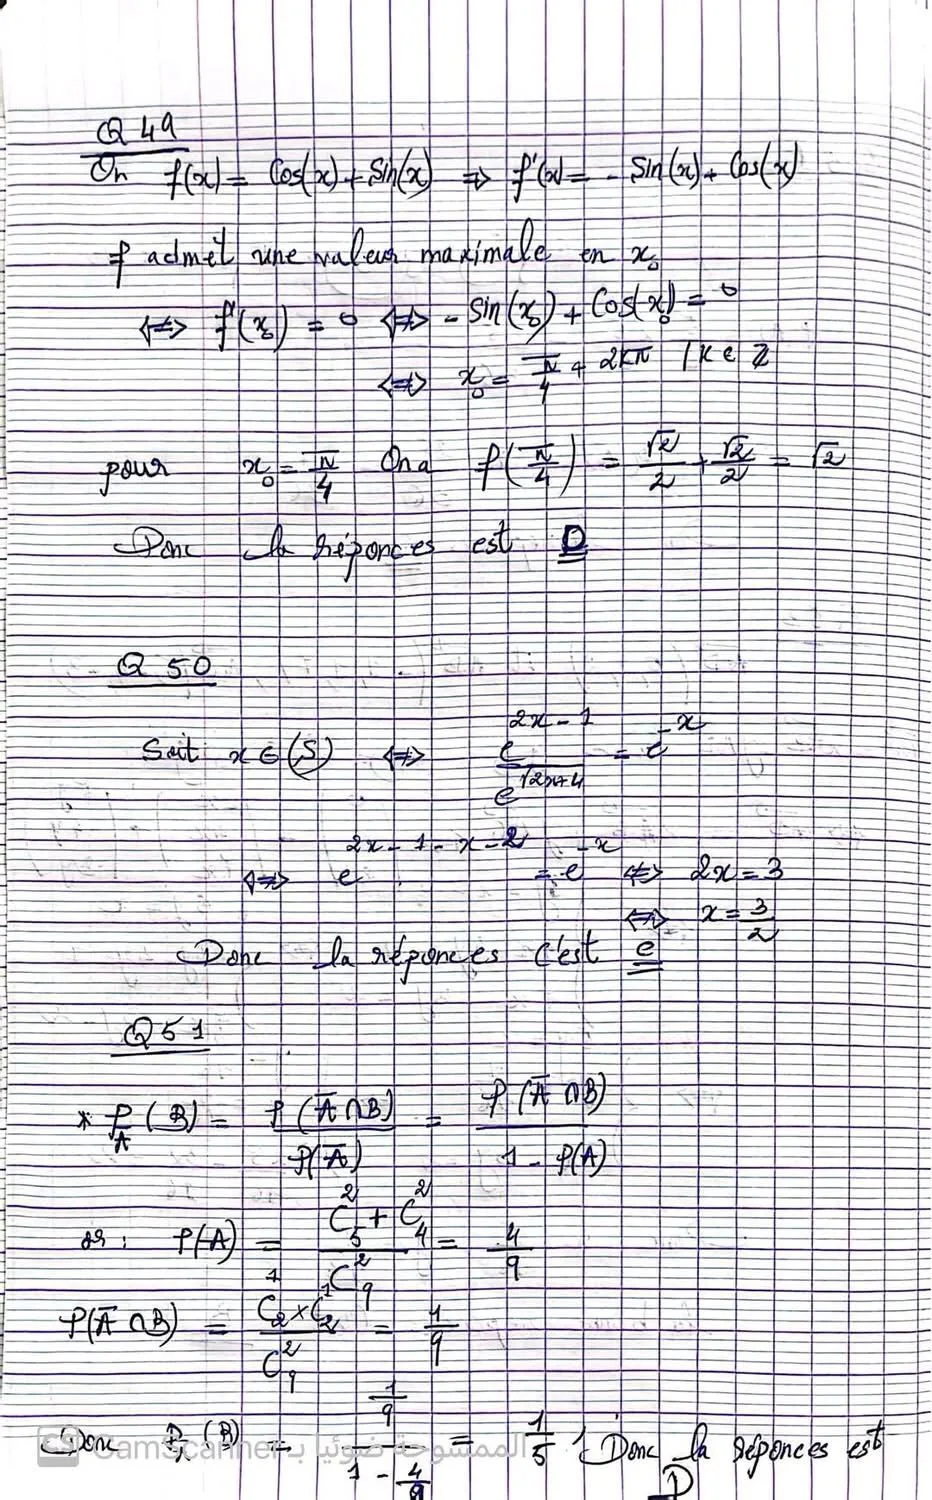 Q 49
On f(x) = Cos(x) + Sin(x) ⇒ f'(x) = - Sin(x) + Cos(x)
f admet une valeur maximale en x₀
⟺ f'(x₀) = 0 ⟺ - Sin(x₀) + Cos(x₀) = 0
⟺ x₀ = π/4 + 2kπ / k ∈ ℤ
pour x₀ = π/4 On a f(π/4) = √2/2 + √2/2 = √2
Donc la réponces est D
Q 50
Soit x ∈ (S) ⟺ e^(2x-1) / e^(√2x+4) = e^(-x)
⟺ e^(2x-1-x-2) = e^(-x) ⟺ 2x = 3
⟺ x = 3/2
Donc la réponces c'est e
Q 51
* P_A̅ (B) = P(A̅ ∩ B) / P(A̅) = P(A̅ ∩ B) / 1 - P(A)
or : P(A) = C₅² + C₄² / C₉² = 4/9
P(A̅ ∩ B) = C₂¹ × C₂¹ / C₉² = 1/9
Donc (B) = 1/9 / 1 - 4/9 = 1/5, Donc la réponces est
D
CS الممسوحة ضوئيا بـ CamScanner